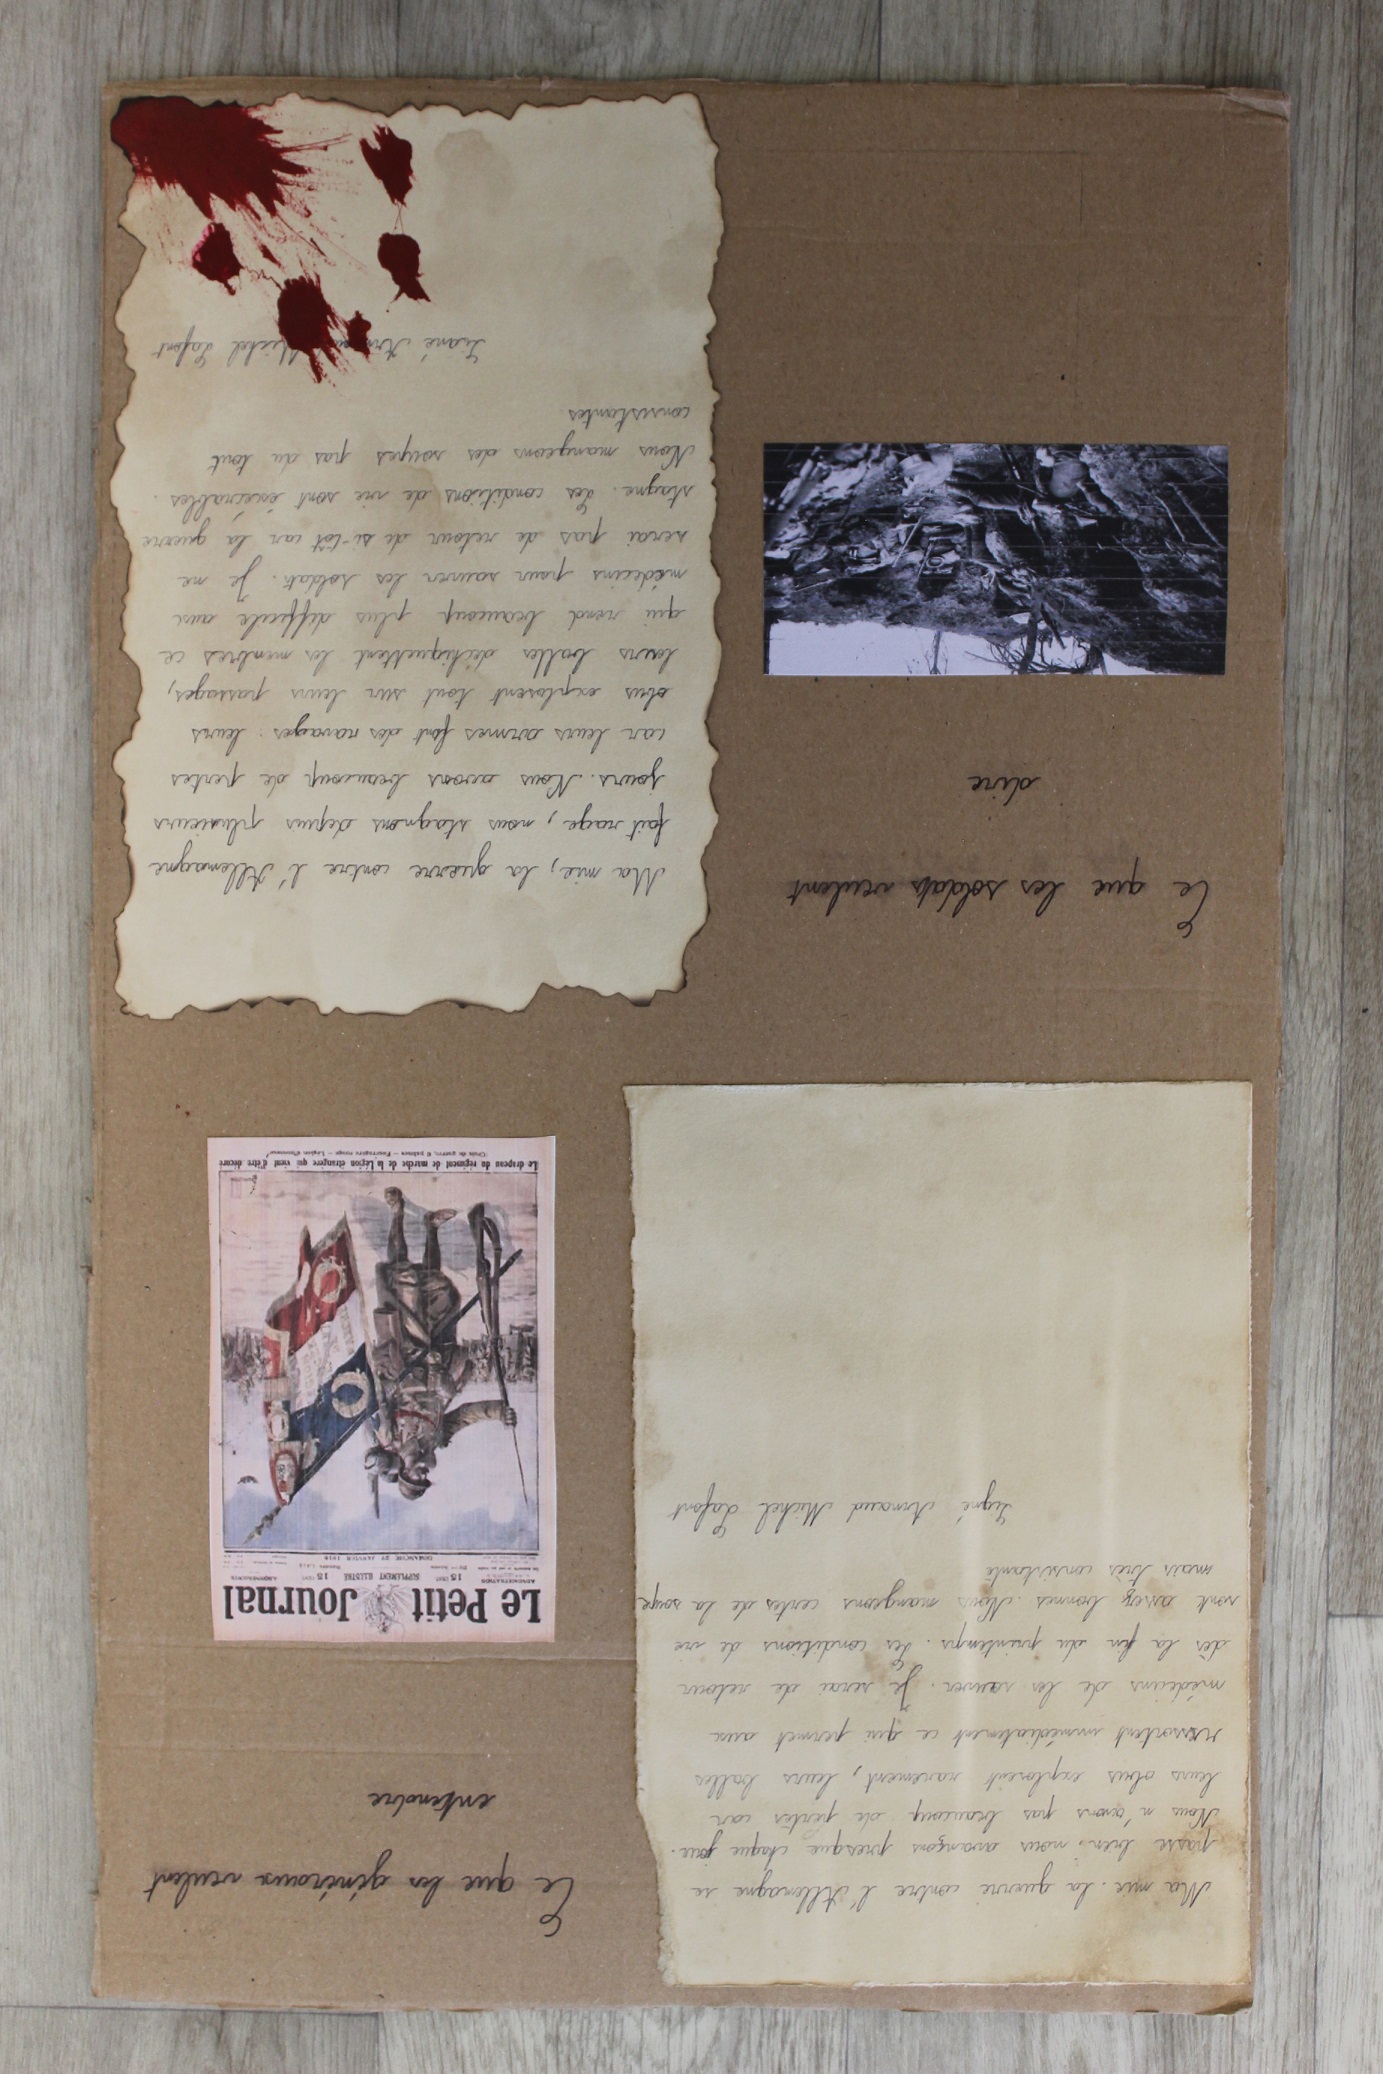 Ce que les généraux veulent
entendre
Ma mie. La guerre contre l'Allemagne se
passe bien. nous avançons presque chaque jour.
Nous n'avons pas beaucoup de pertes car
leurs obus explosent rarement, leurs balles
ressortent immédiatement ce qui permet aux
médecins de les sauver. Je serai de retour
dès la fin du printemps. Les conditions de vie
sont assez bonnes. Nous mangeons certes de la soupe
mais très consistante
Signé Arnaud Michel Lafont
Le Petit Journal
ADMINISTRATION
15 CENT.
SUPPLÉMENT ILLUSTRÉ
15 CENT.
ABONNEMENTS
DIMANCHE 27 JANVIER 1918
Le drapeau du régiment de marche de la Légion étrangère qui vient d'être décoré
Croix de guerre, 6 palmes — Fourragère rouge — Légion d'honneur
Ce que les soldats veulent
dire
Ma mie, la guerre contre l'Allemagne
fait rage, nous stagnons depuis plusieurs
jours. Nous avons beaucoup de pertes
car leurs armes font des ravages : leurs
obus explosent tout sur leurs passages,
leurs balles déchiquettent les membres ce
qui rend beaucoup plus difficile aux
médecins pour sauver les soldats. Je ne
serai pas de retour de si-tôt car la guerre
stagne. Les conditions de vie sont éxécrables.
Nous mangeons des soupes pas du tout
consistantes
Signé Michel Lafont